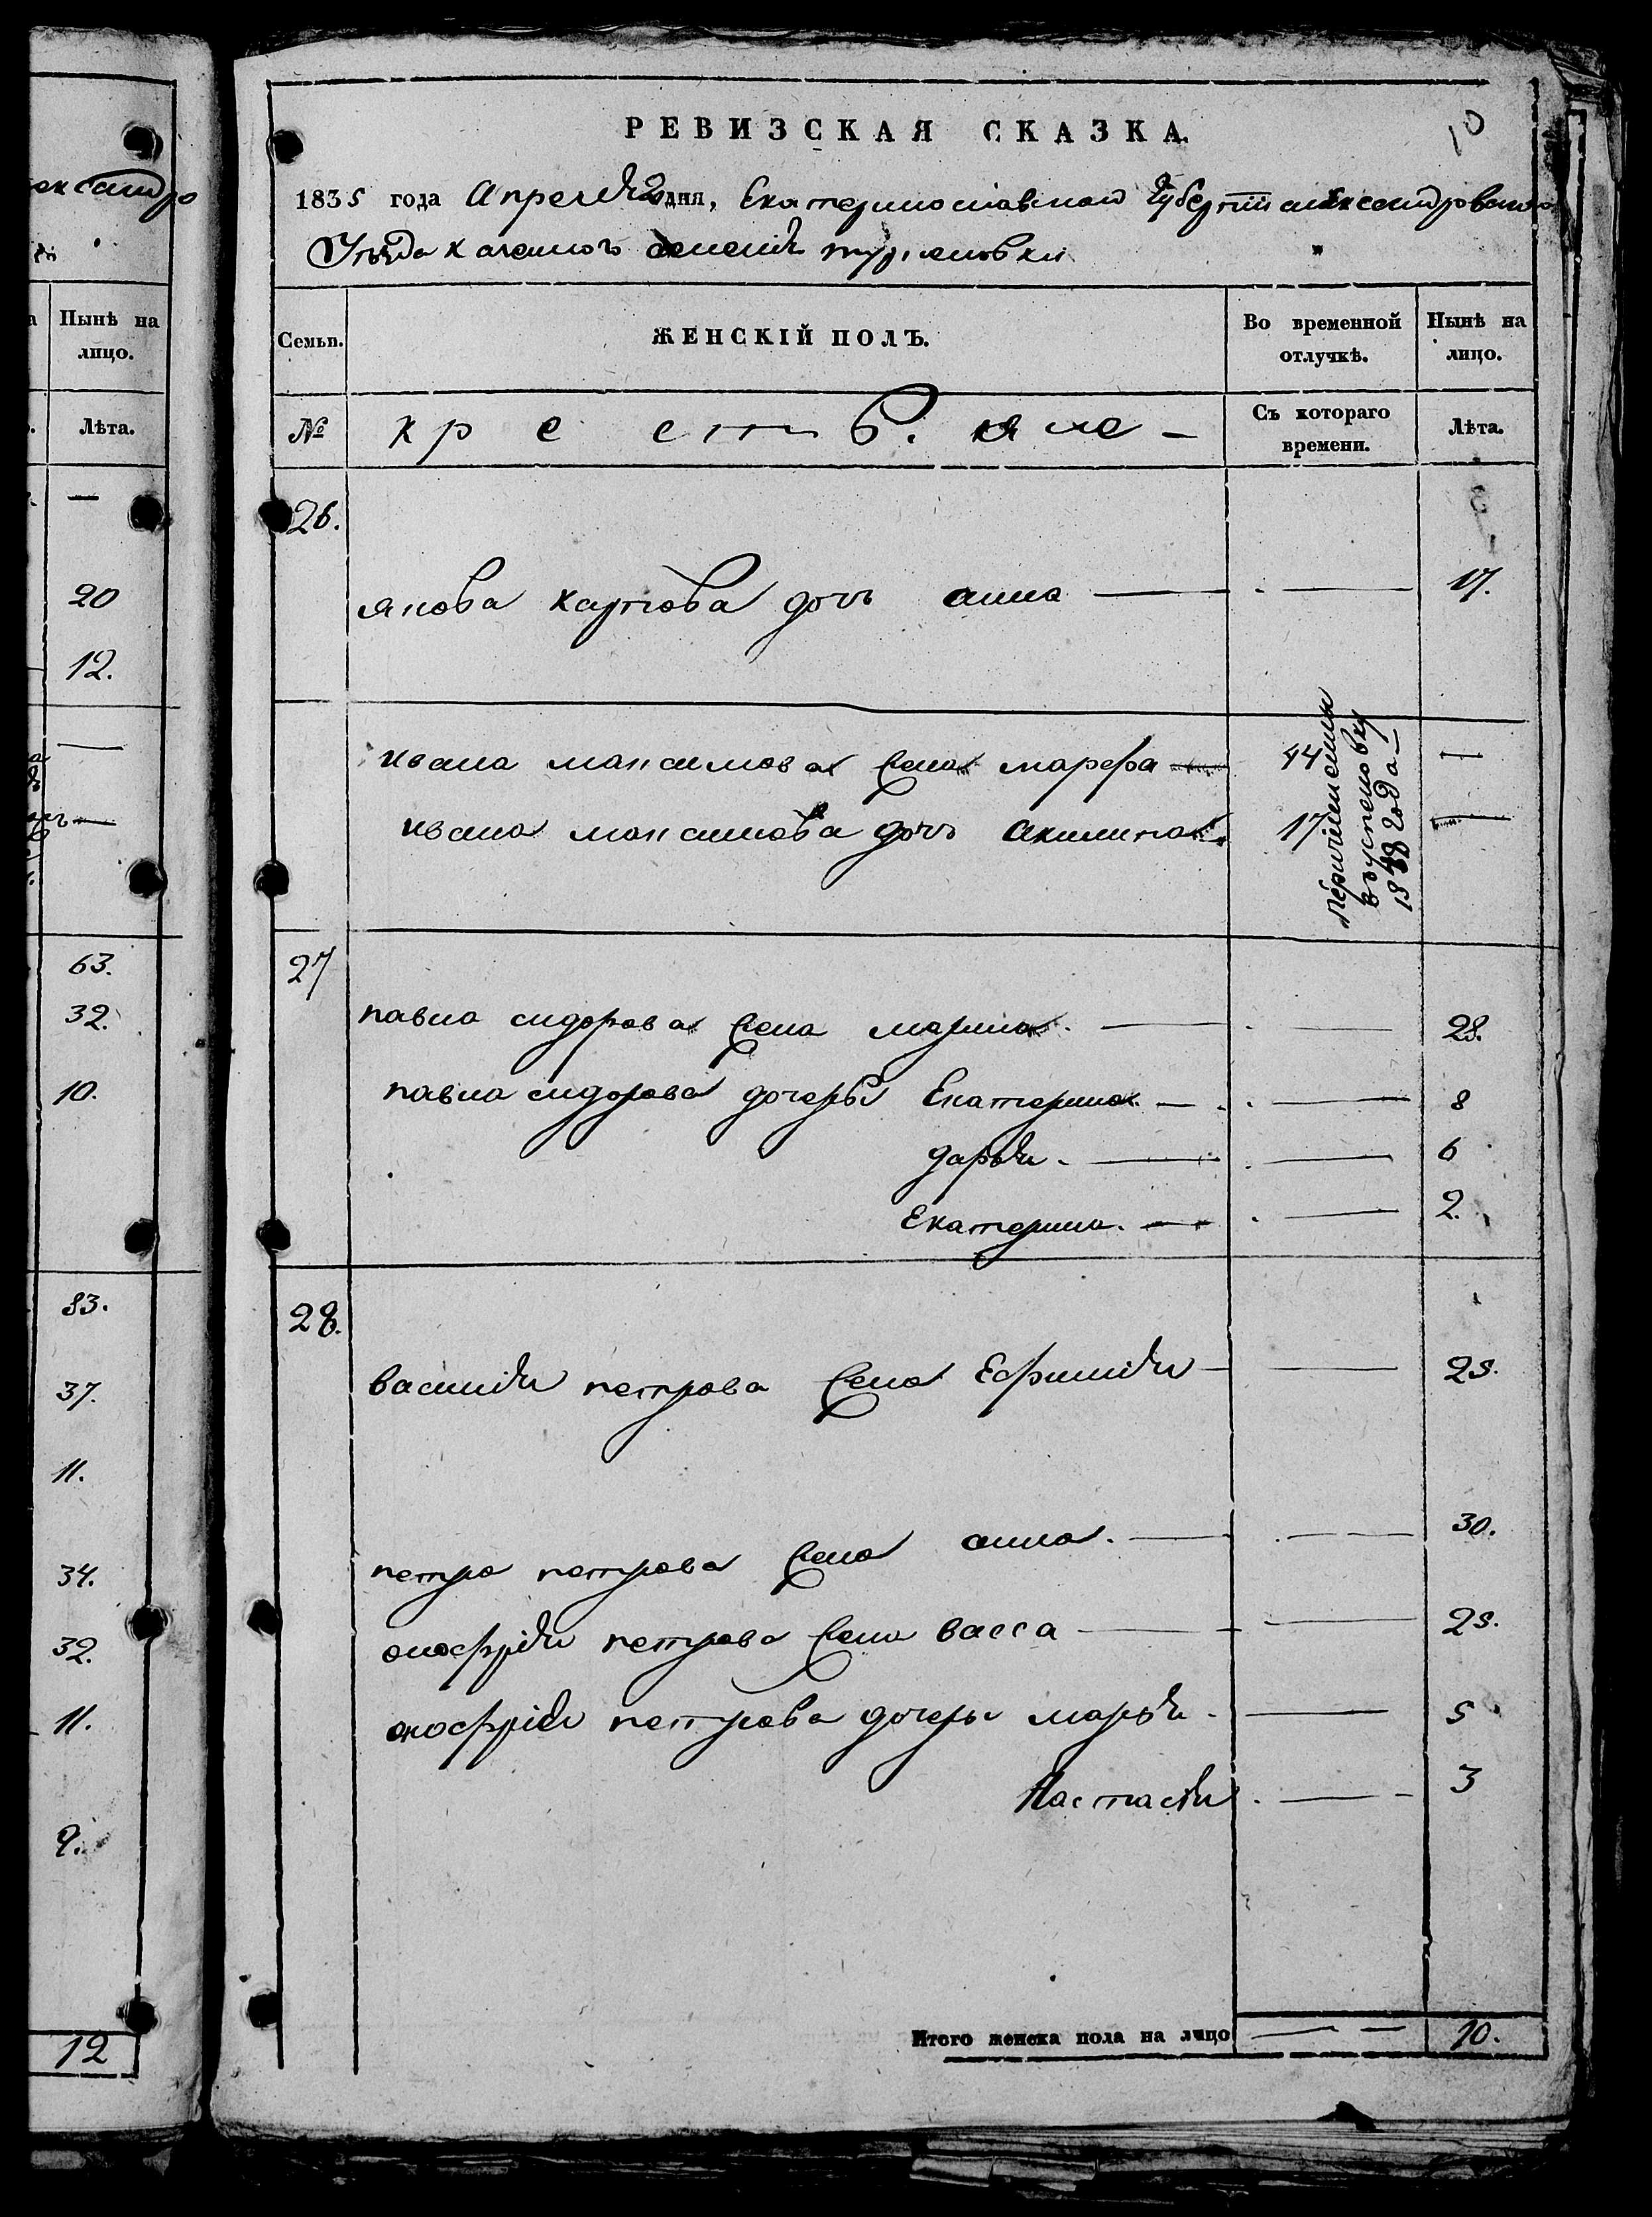 ександро
Нынѣ на
лицо.
Лѣта.
—
20
12.
—
—
63.
32.
10.
83.
37.
11.
34.
32.
11.
9.
12
10
РЕВИЗСКАЯ СКАЗКА.
1835 года Апреля 2 дня, Екатеринославской Губерніи александровскаго
Уезда
Семьи. ЖЕНСКІЙ ПОЛЪ. Во временной отлучкѣ. Нынѣ на лицо.
№ крестьяне - Съ котораго времени. Лѣта.
26.
якова карпова доч анна — — 17.
ивана максимова жена марфа — 44 —
ивана максимова доч акилина. 17 —
перичислены
в успеновку
18 года
27
павла сидорова жена марина. — 28.
павла сидорова дочеры Екатерина. — — 8
дарья. — — 6
Екатерина. — — 2.
28.
василия петрова жена Ефимия — — 25.
петра петрова жена анна. — — 30.
онофрія петрова жена васса — — 25.
онофрія петрова дочеры марья. — 5
Настасия. — 3
Итого женска пола на лицо — — 10.